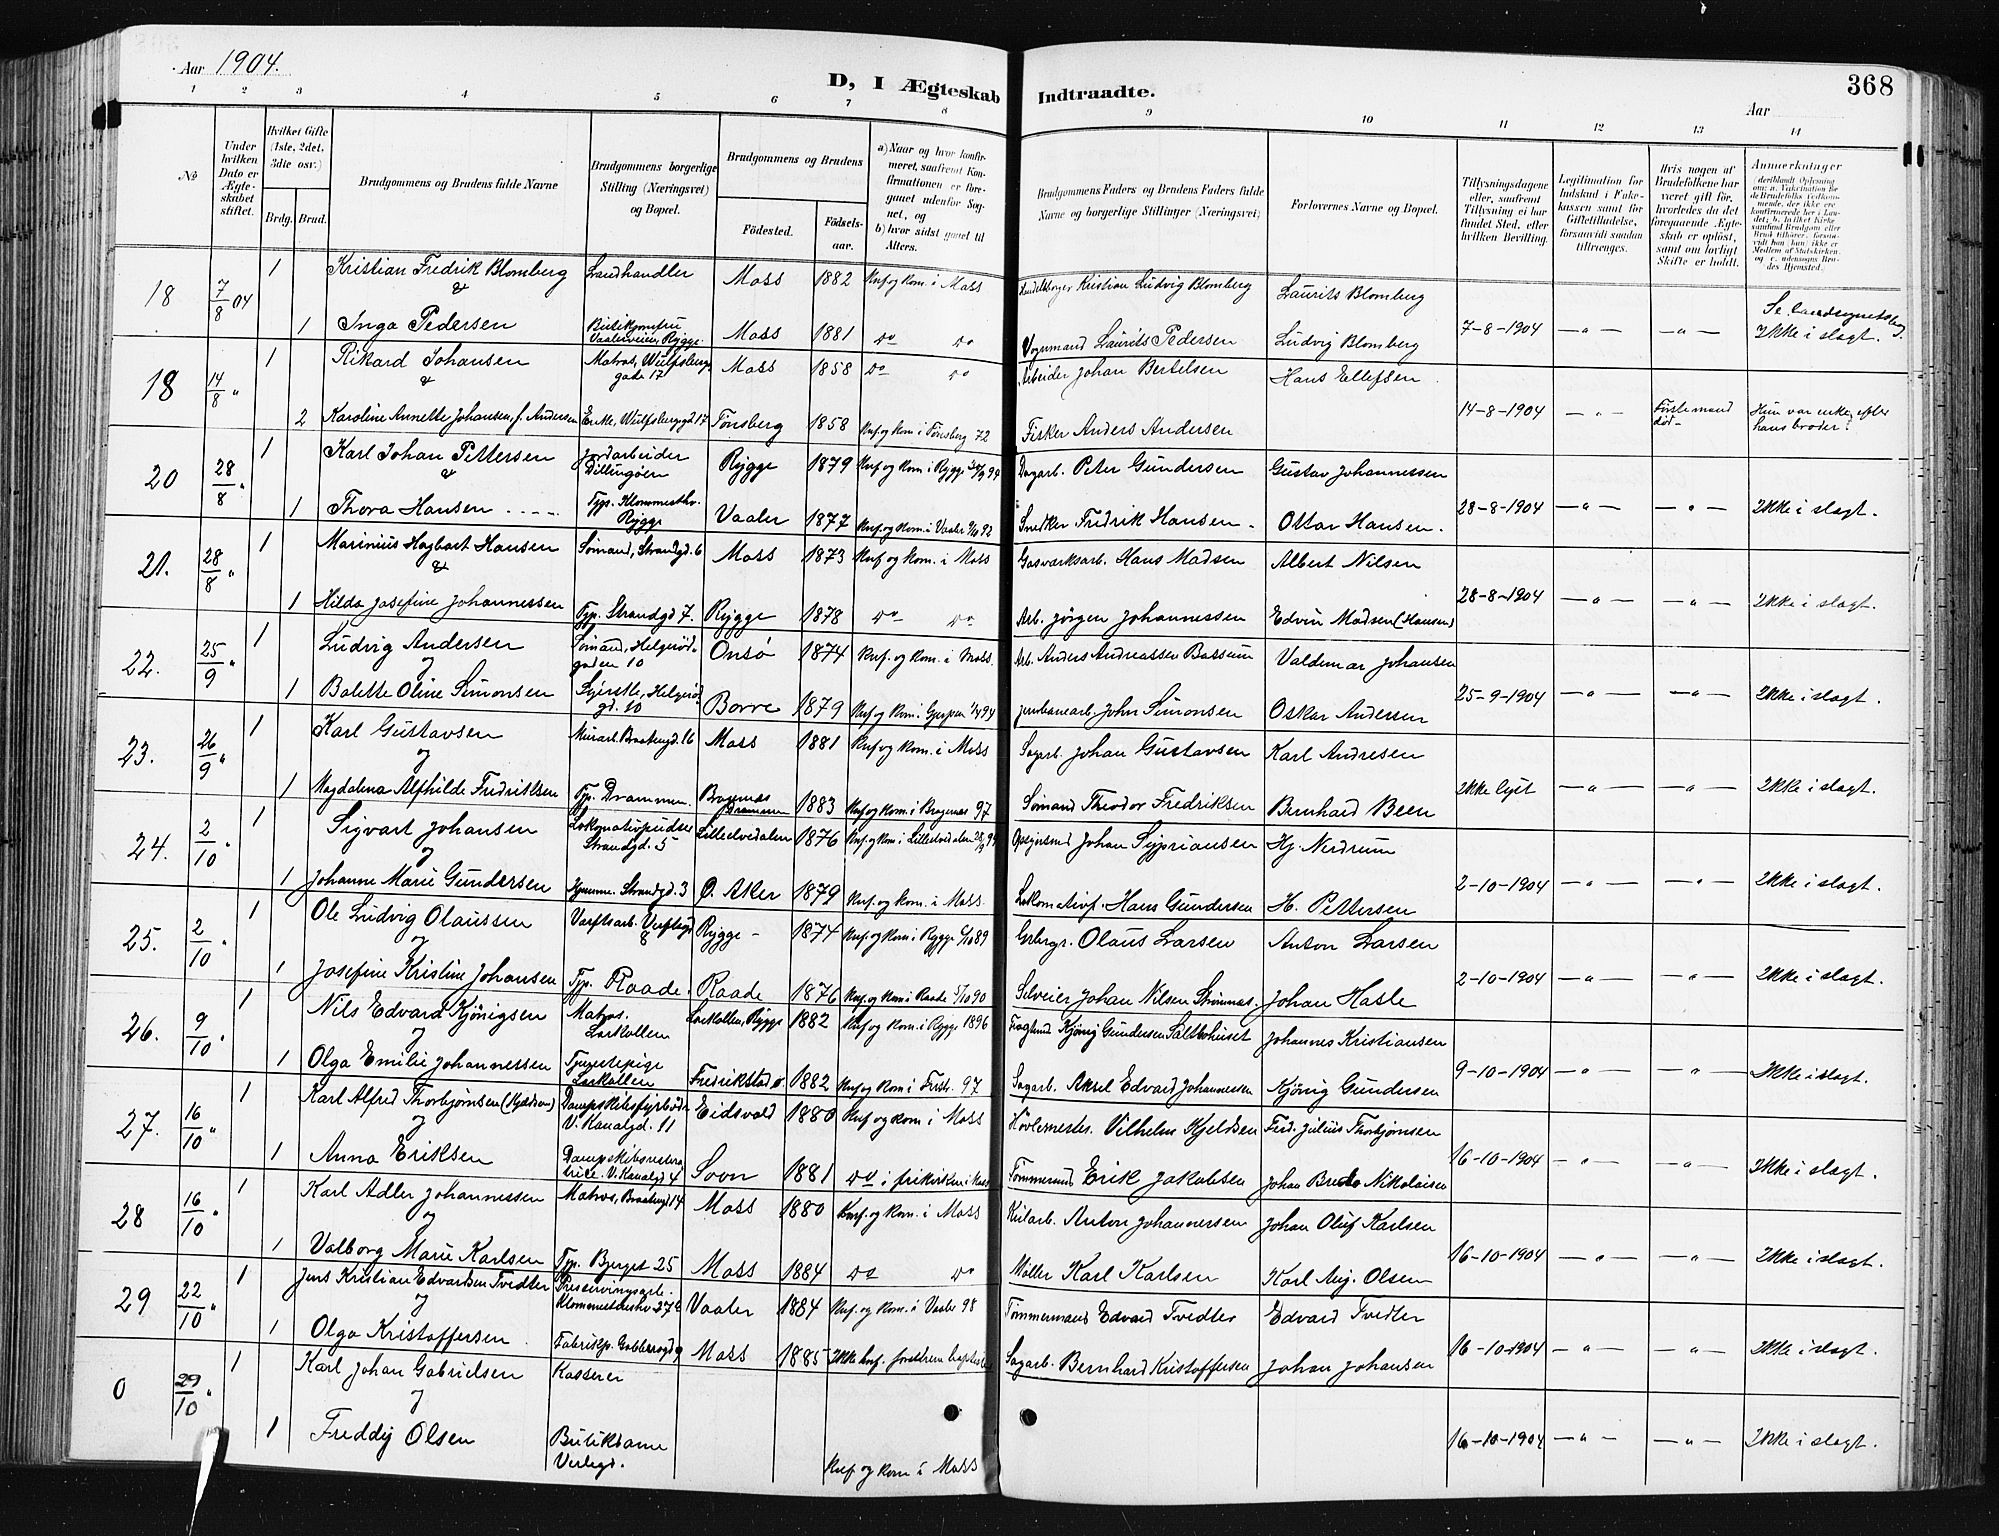 Aar 1904.
D, I Ægteskab Indtraadte.
368
Aar
1 2 3 4 5 6 7 8 9 10 11 12 13 14
No
Under hvilken Dato er Ægteskabet stiftet.
Hvilket Gifte (1ste, 2det, 3die osv.)
Brdg. Brud.
Brudgommens og Brudens fulde Navne
Brudgommens borgerlige Stilling (Næringsvei) og Bopæl.
Brudgommens og Brudens
Fødested. Fødselsaar.
a) Naar og hvor konfirmeret, saafremt Konfirmationen er foregaaet udenfor Sognet, og
b) hvor sidst gaaet til Alters.
Brudgommens Faders og Brudens Faders fulde Navne og borgerlige Stillinger (Næringsvei)
Forlovernes Navne og Bopæl.
Tillysningsdagene eller, saafremt Tillysning ei har fundet Sted, efter hvilken Bevilling.
Legitimation for Indskud i Enkekassen samt for Giftetilladelse, forsaavidt saadan tiltrænges.
Hvis nogen af Brudefolkene har været gift før, hvorledes da det foregaaende Ægteskab er opløst, samt om lovligt Skifte er holdt.
Anmærkninger
18 7/8 04 1 Kristian Fredrik Blomberg Landhandler Moss 1882 Knf. og kom. i Moss Handelsborger Kristian Ludvig Blomberg Laurits Blomberg
&
1 Inga Pedersen Butikjomfru Vaalerveien, Rygge. Moss 1881 do do Vognmand Laurits Pedersen Ludvig Blomberg 7-8-1904 — " — — " — Ikke i slagt.
18 14/8 " 1 Rikard Johansen Matros, Wulfsberggade 17 Moss 1858 do do Arbeider Johan Bertelsen Hans Ellefsen
&
2 Karoline Annette Johansen, f. Andersen Enke, Wulfsberggd 17 Tønsberg 1858 Knf. og kom. i Tønsberg 72 Fisker Anders Andersen 14-8-1904 — " — Første mand død — Hun var enke efter hans broder.
20 28/8 " 1 Karl Johan Pettersen Jordarbeider Dillingøen Rygge 1879 Knf. og kom. i Rygge Dagarb. Peter Gundersen Gustav Johannessen
&
1 Thora Hansen Typ. Klommesthv. Rygge Vaaler 1877 Knf. og kom. i Vaaler Snedker Fredrik Hansen Ottar Hansen. 28-8-1904 — " — — " — Ikke i slagt.
21. 28/8 " 1 Marinius Hagbart Hansen Sømand, Strandgd. 6 Moss 1873 Knf. og kom. i Moss Gasværksarb. Hans Madsen Albert Nilsen
&
1 Hilda Josefine Johannessen Typ. Strandgd 7. Rygge 1878 do do Arb. Jørgen Johannessen Edvin Madsen (Hansen) 28-8-1904 — " — — " — Ikke i slagt.
22. 25/9 " 1 Ludvig Andersen Sømand, Helgerødgaden 10 Onsø 1874 Knf. og kom. i Moss. Arb. Anders Andreassen Bassum Valdemar Johansen
og
1 Balette Oline Simonsen Syerske, Helgerødgd. 10 Borre 1879 Knf. og kom. i Gjerpen Jernbanearb. John Simonsen Oskar Andersen 25-9-1904 — " — — " — Ikke i slagt.
23. 26/9 " 1 Karl Gustavsen Murarb. Braatengd. 16 Moss 1881 Knf. og kom. i Moss Sagarb. Johan Gustavsen Karl Andresen
og
1 Magdalena Alfhilde Fredriksen Typ. Drammen. Bragenæs Drammen 1883 Knf. og kom. i Bragenæs 97 Sømand Theodor Fredriksen Bernhard Been Ikke lyst — " — — " — Ikke i slagt.
24. 2/10 " 1 Sigvart Johansen Lokomotivpudser Strandgd. 5 Lilleelvedalen 1876 Knf. og kom. i Lilleelvedalen Opsynsmd Johan Sypriansen Hj. Nerdrum
og
1 Johanne Marie Gundersen Hjemme. Strandgd. 3 Ø. Aker 1879 Knf. og kom. i Moss Lokomotivf. Hans Gundersen H. Pettersen 2-10-1904 — " — — " — Ikke i slagt.
25. 2/10 " 1 Ole Ludvig Olaussen Værftsarb. Verftsgd 8 Rygge 1874 Knf. og kom. i Rygge 89 Olaus Larsen Anton Larsen
og
1 Josefine Kristine Johansen Typ. Raade. Raade 1876 Knf. og kom. i Raade 90 Selveier Johan Nilsen Strømnæs. Johan Hasle 2-10-1904 — " — — " — Ikke i slagt.
26. 9/10 " 1 Nils Edvard Kjønigsen Matros. Larkollen Larkollen, Rygge 1882 Knf. og kom. i Rygge 1896 Kjønig Gundersen Salthohuset Johannes Kristiansen
og
1 Olga Emilie Johannessen Tjenestepige Larkollen Fredrikstad 1882 Knf. og kom. i Frstd. 97 Sagarb. Aksel Edvard Johannessen Kjønig Gundersen 9-10-1904 — " — — " — Ikke i slagt.
27. 16/10 " 1 Karl Alfred Thorbjørnsen (Kjeldsen) Dampskibsfyrbøder V. Kanalgd. 11 Eidsvold 1880 Knf. og kom. i Moss Høvlemester. Vilhelm Kjeldsen Ferd. Julius Thorbjørnsen
og
1 Anna Eriksen V. Kanalgd 4 Sovn 1881 do i frikirken i Moss Tømmermd Erik Jakobsen Johan Nikolaisen 16-10-1904 — " — — " — Ikke i slagt.
28 16/10 " 1 Karl Adler Johannessen Matros, Braategd 14 Moss 1880 Knf. og kom. i Moss Anton Johannessen Johan Oluf Karlsen
og
1 Valborg Marie Karlsen Typ. Bjerget 25 Moss 1884 do do Møller Karl Karlsen Karl Aug. Olsen 16-10-1904 — " — — " — Ikke i slagt.
29 22/10 " 1 Jens Kristian Edvardsen Tvedter Preserveringsarb. Vaaler 1884 Knf. og kom. i Vaaler 98 Tømmermand Edvard Tvedter Edvard Tvedter
og
1 Olga Kristoffersen Fabrikp. Moss 1885 Ikke knf. foreldrene baptister Sagarb. Bernhard Kristoffersen Johan Johansen 16-10-1904 — " — — " — Ikke i slagt.
0 29/10 " 1 Karl Johan Gabrielsen Kasserer
og
1 Freddy Olsen Butikdame Verlegd. Knf. og kom i Moss 16-10-1904 — " — — " — Ikke i slagt.